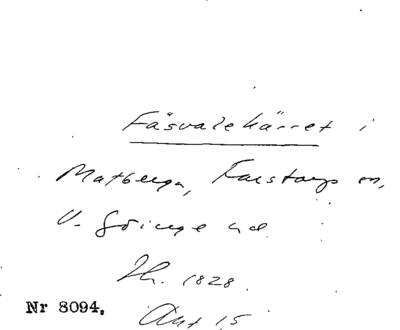 Fäsvalekärret i
Matberga, Farstorps sn,
V. Göinge hd
Th. 1828.
Nr 8094.
Aut 15